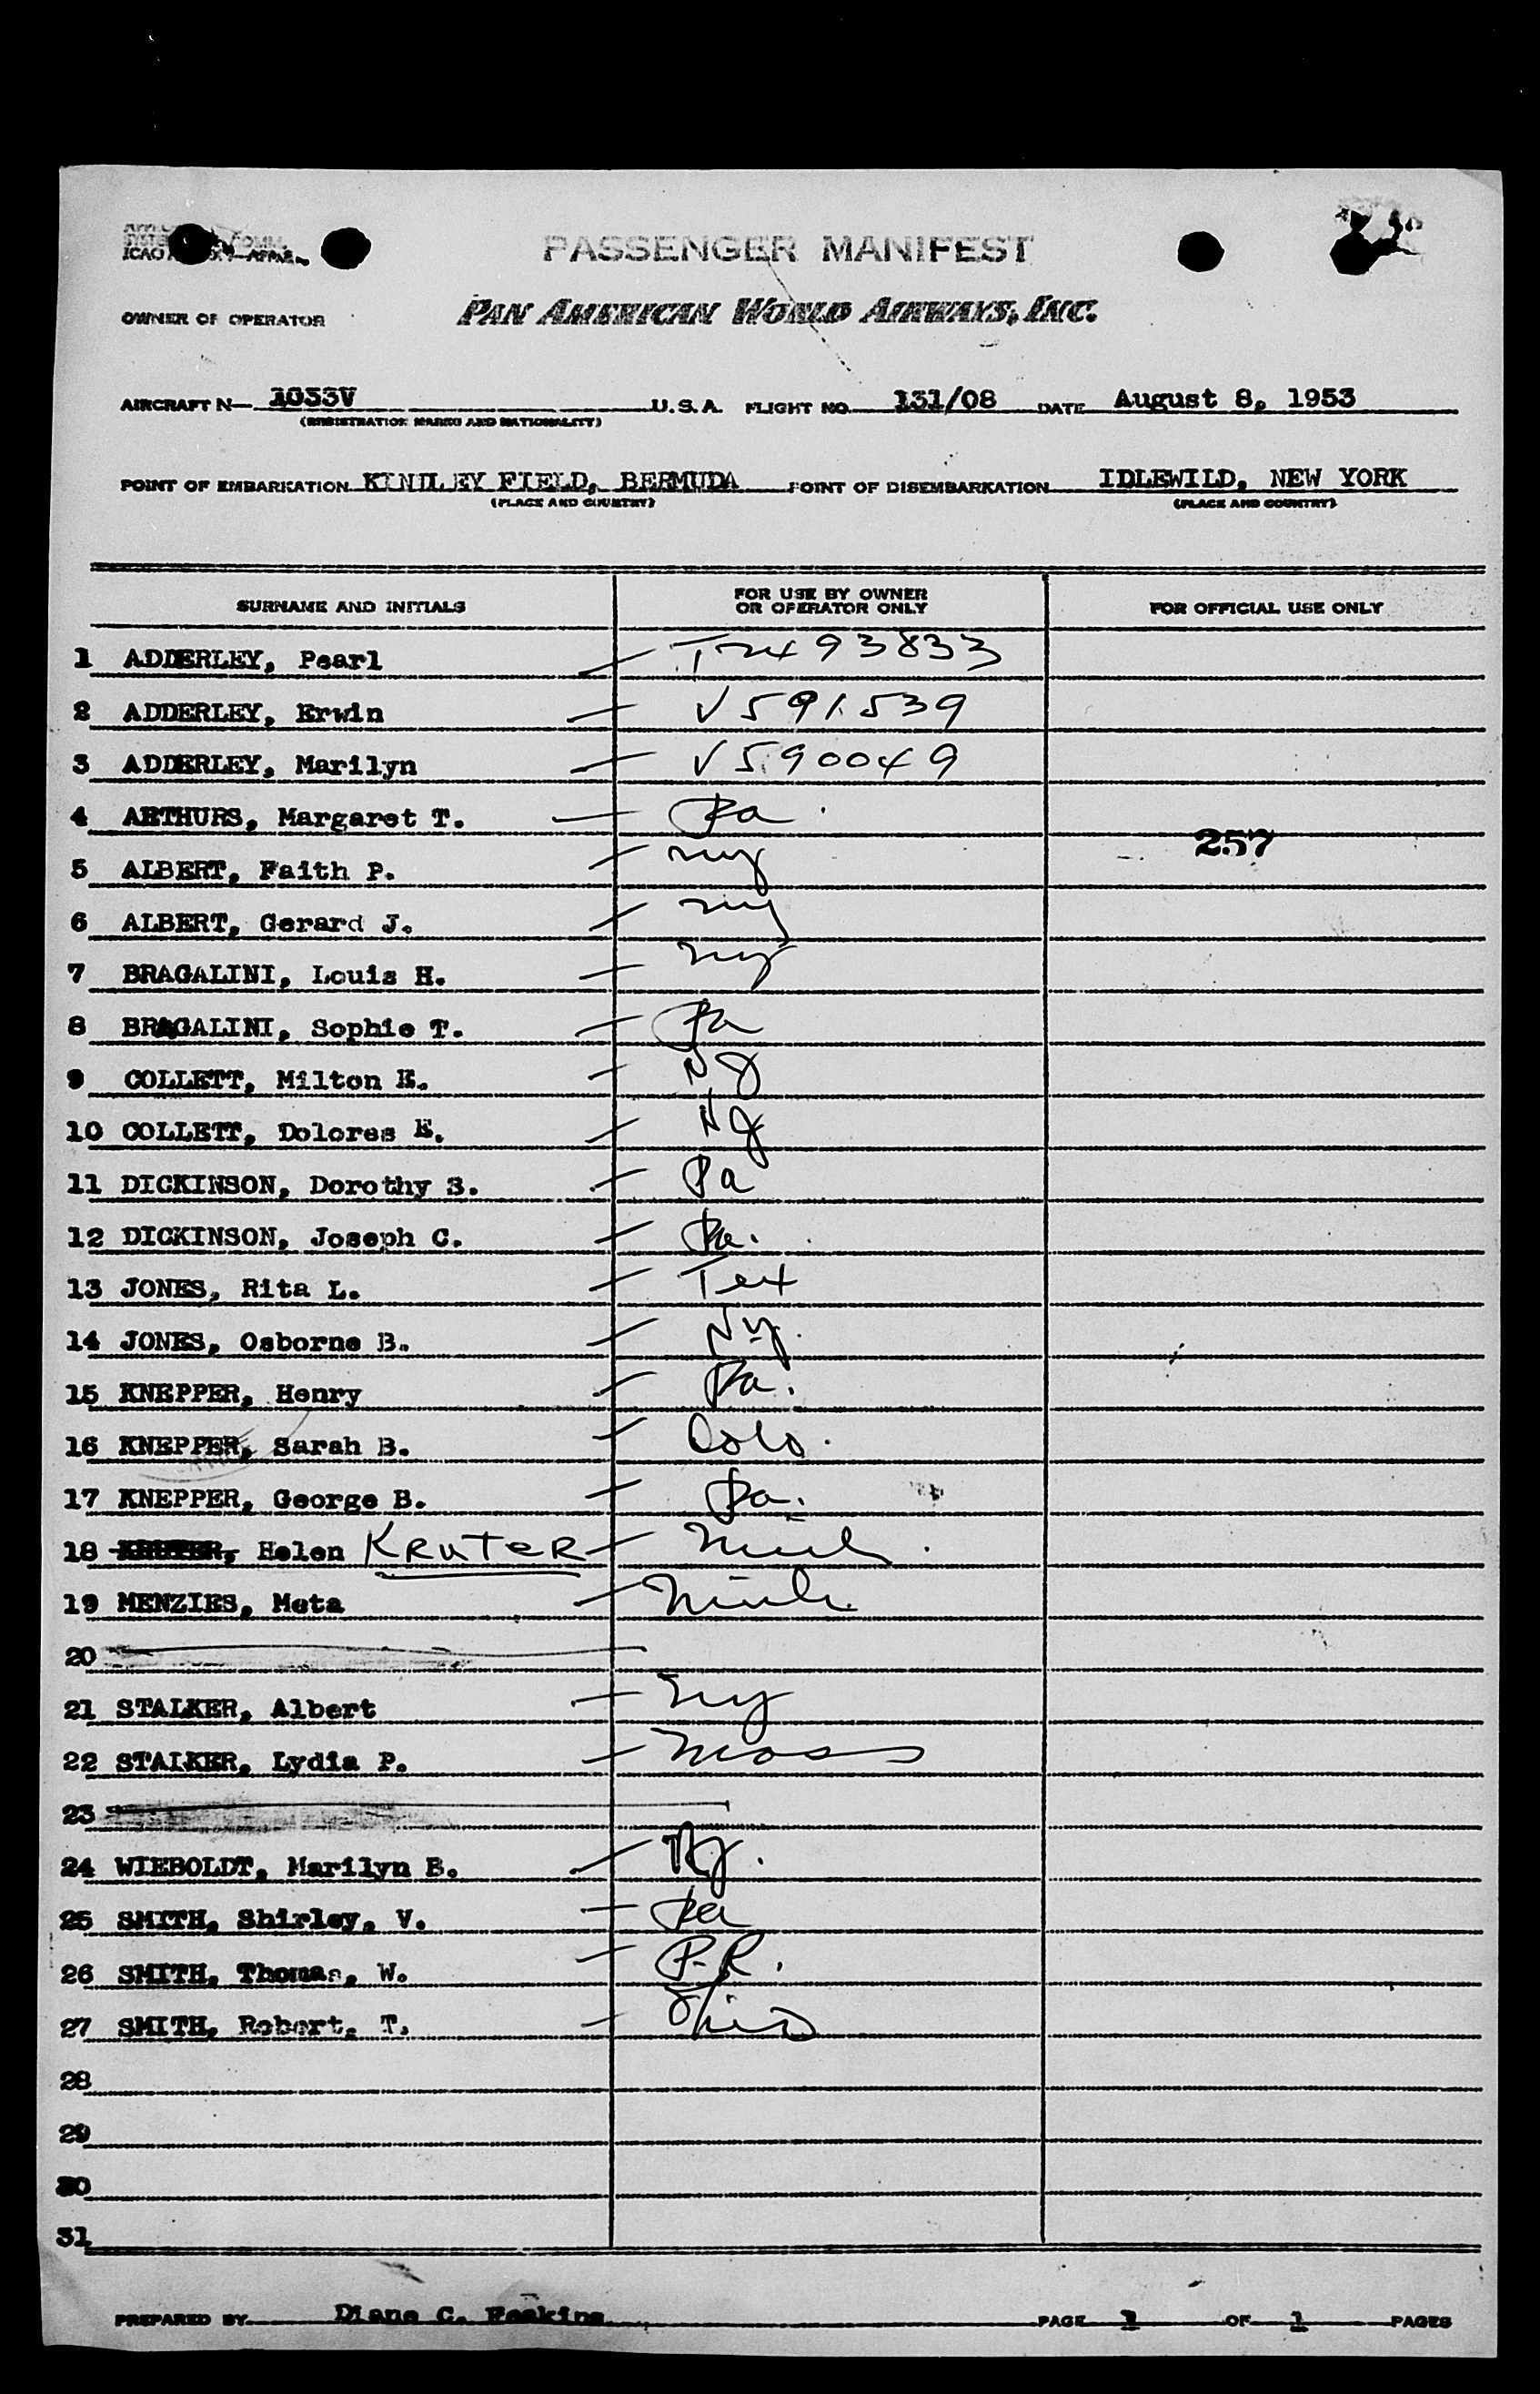 PASSENGER MANIFEST
OWNER OF OPERATOR PAN AMERICAN WORLD AIRWAYS, INC.
AIRCRAFT N— 1033V U.S.A. FLIGHT NO. 131/08 DATE August 8, 1953
(REGISTRATION MARKS AND NATIONALITY)
POINT OF EMBARKATION KINDLEY FIELD, BERMUDA POINT OF DISEMBARKATION IDLEWILD, NEW YORK
(PLACE AND COUNTRY) (PLACE AND COUNTRY)
SURNAME AND INITIALS FOR USE BY OWNER OR OPERATOR ONLY FOR OFFICIAL USE ONLY
1 ADDERLEY, Pearl 493833
2 ADDERLEY, Erwin V591539
3 ADDERLEY, Marilyn V590049
4 ARTHURS, Margaret T. Pa
257
5 ALBERT, Faith P. ny
6 ALBERT, Gerard J. ny
7 BRAGALINI, Louis H. ny
8 BRAGALINI, Sophie T. Pa
9 COLLETT, Milton E. NJ
10 COLLETT, Dolores E. NJ
11 DICKINSON, Dorothy S. Pa
12 DICKINSON, Joseph C. Pa.
13 JONES, Rita L. Tex
14 JONES, Osborne B. Ny.
15 KNEPPER, Henry Pa.
16 KNEPPER, Sarah B. Colo.
17 KNEPPER, George B. Pa.
18 Helen KRUTER Mich.
19 MENZIES, Meta Mich.
20
21 STALKER, Albert ny
22 STALKER, Lydia P. Mass
23
24 WIEBOLDT, Marilyn B.
25 SMITH, Shirley, V. Pa
26 SMITH, Thomas, W. P.R.
27 SMITH, Robert, T. Ohio
28
29
30
31
PREPARED BY Diane C. PAGE 1 OF 1 PAGES